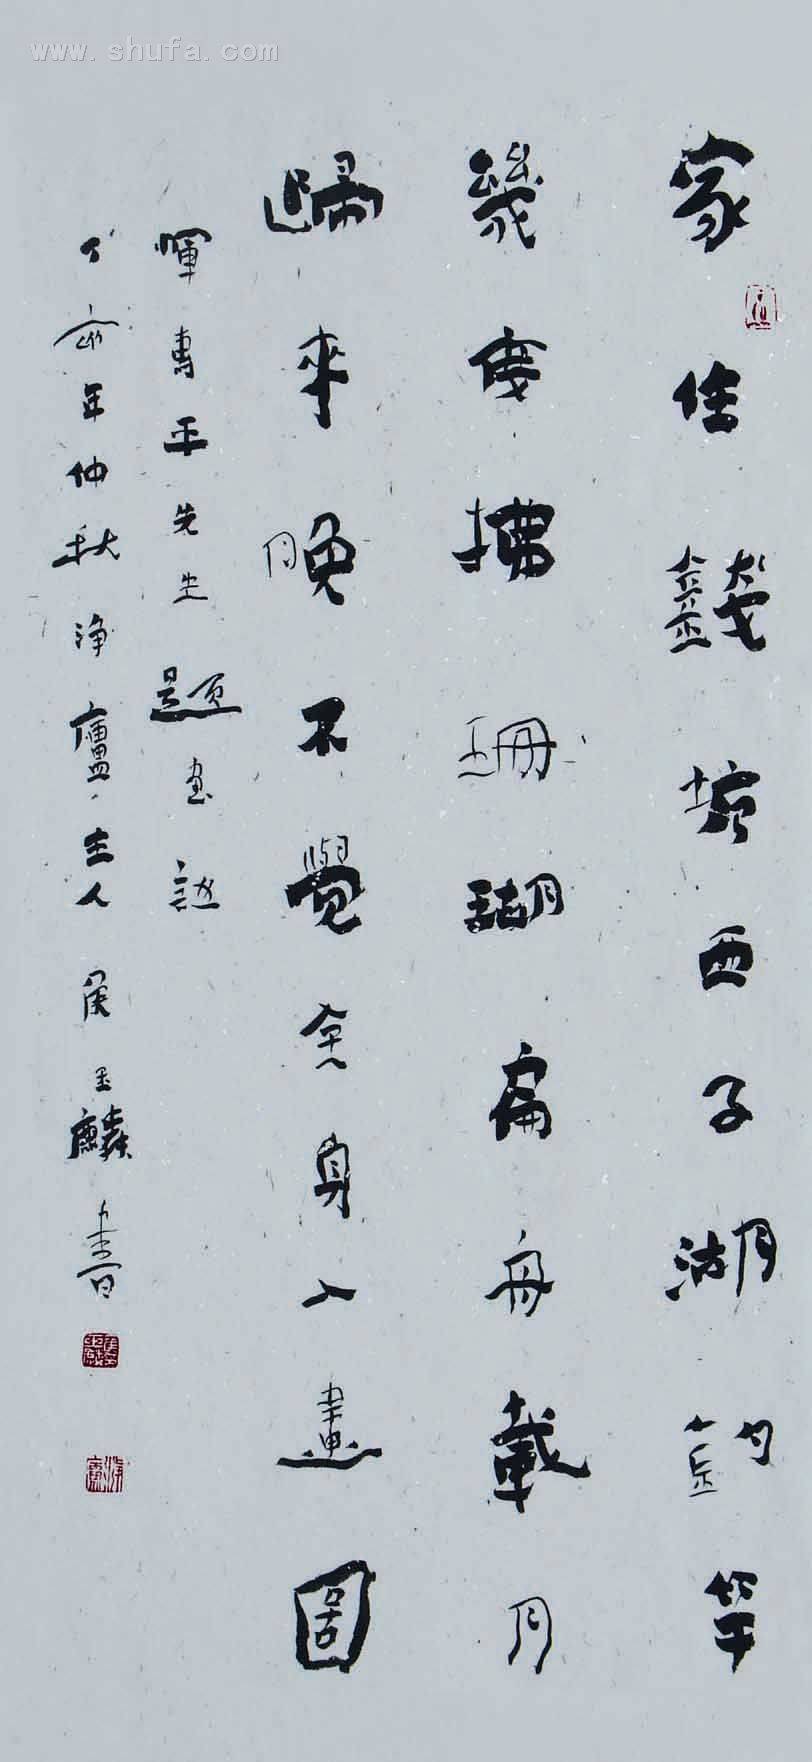 www.shufa.com
家住錢塘西子湖釣竿
幾度拂珊瑚扁舟載月
歸來晚不覺全身入畫圖
惲壽平先生題畫詩
丁亥年仲秋淨廬主人侯玉麟書